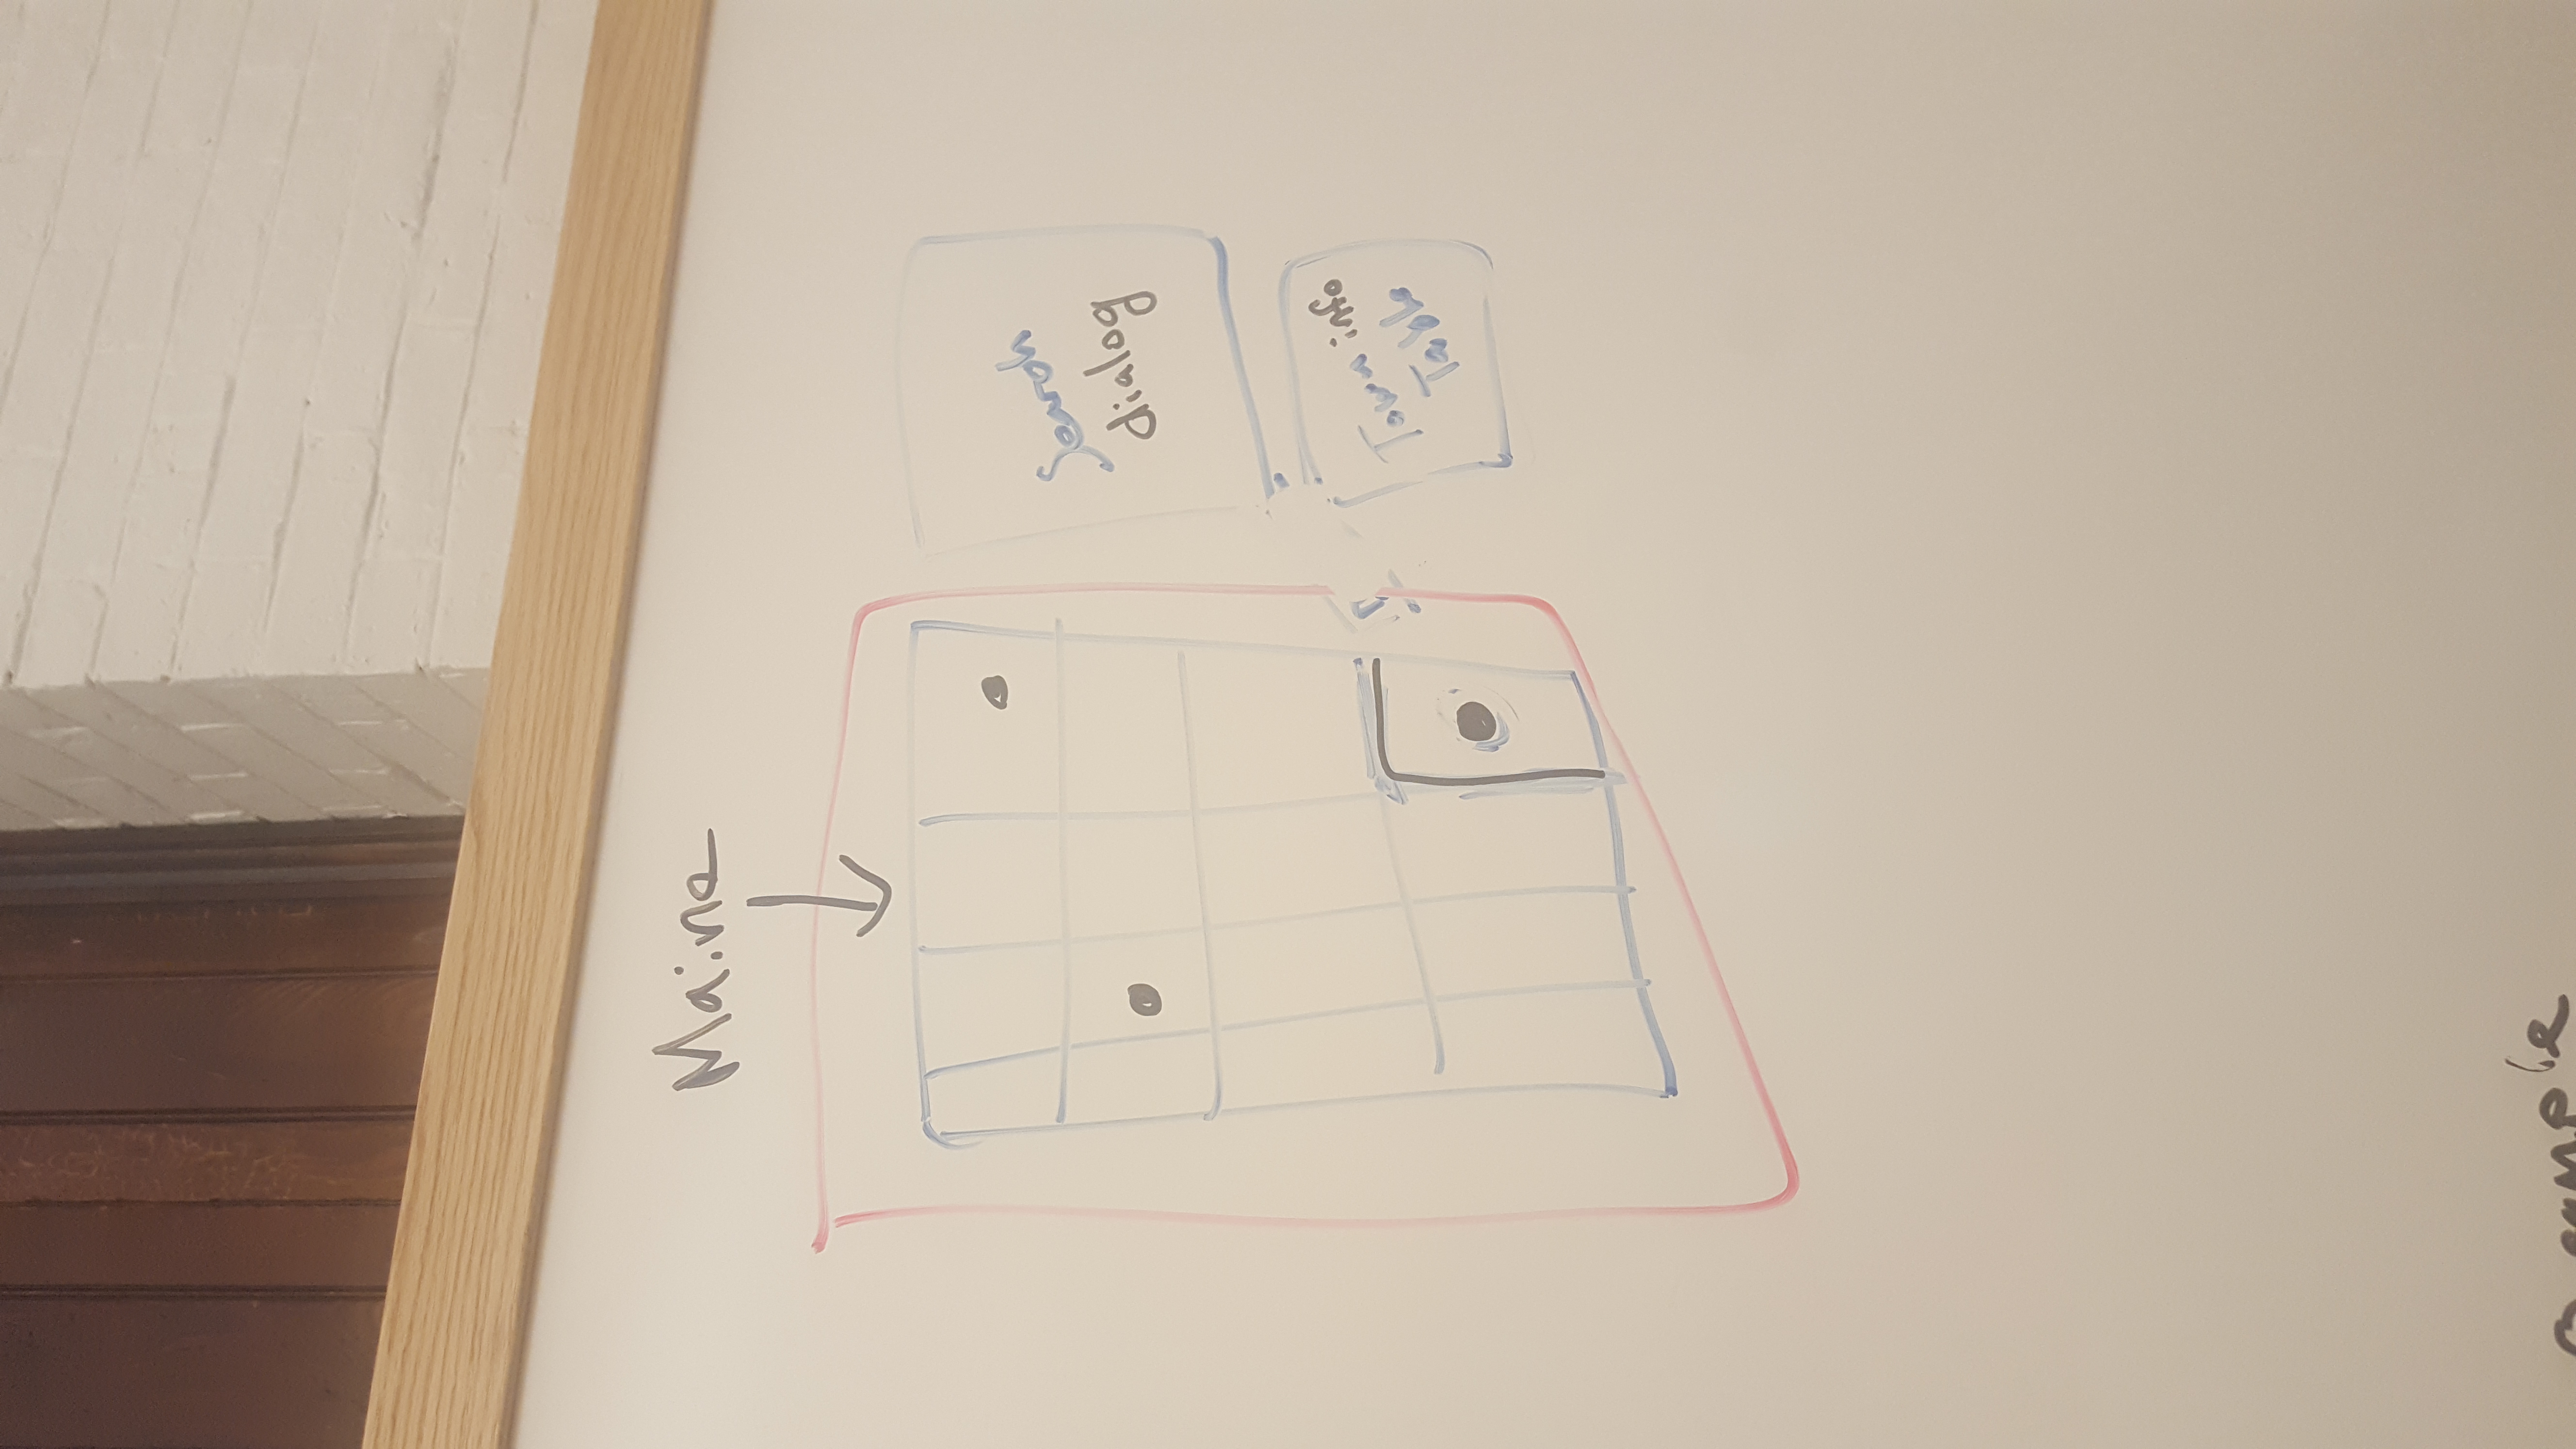 Maine
Search
dialog
Town info
Table